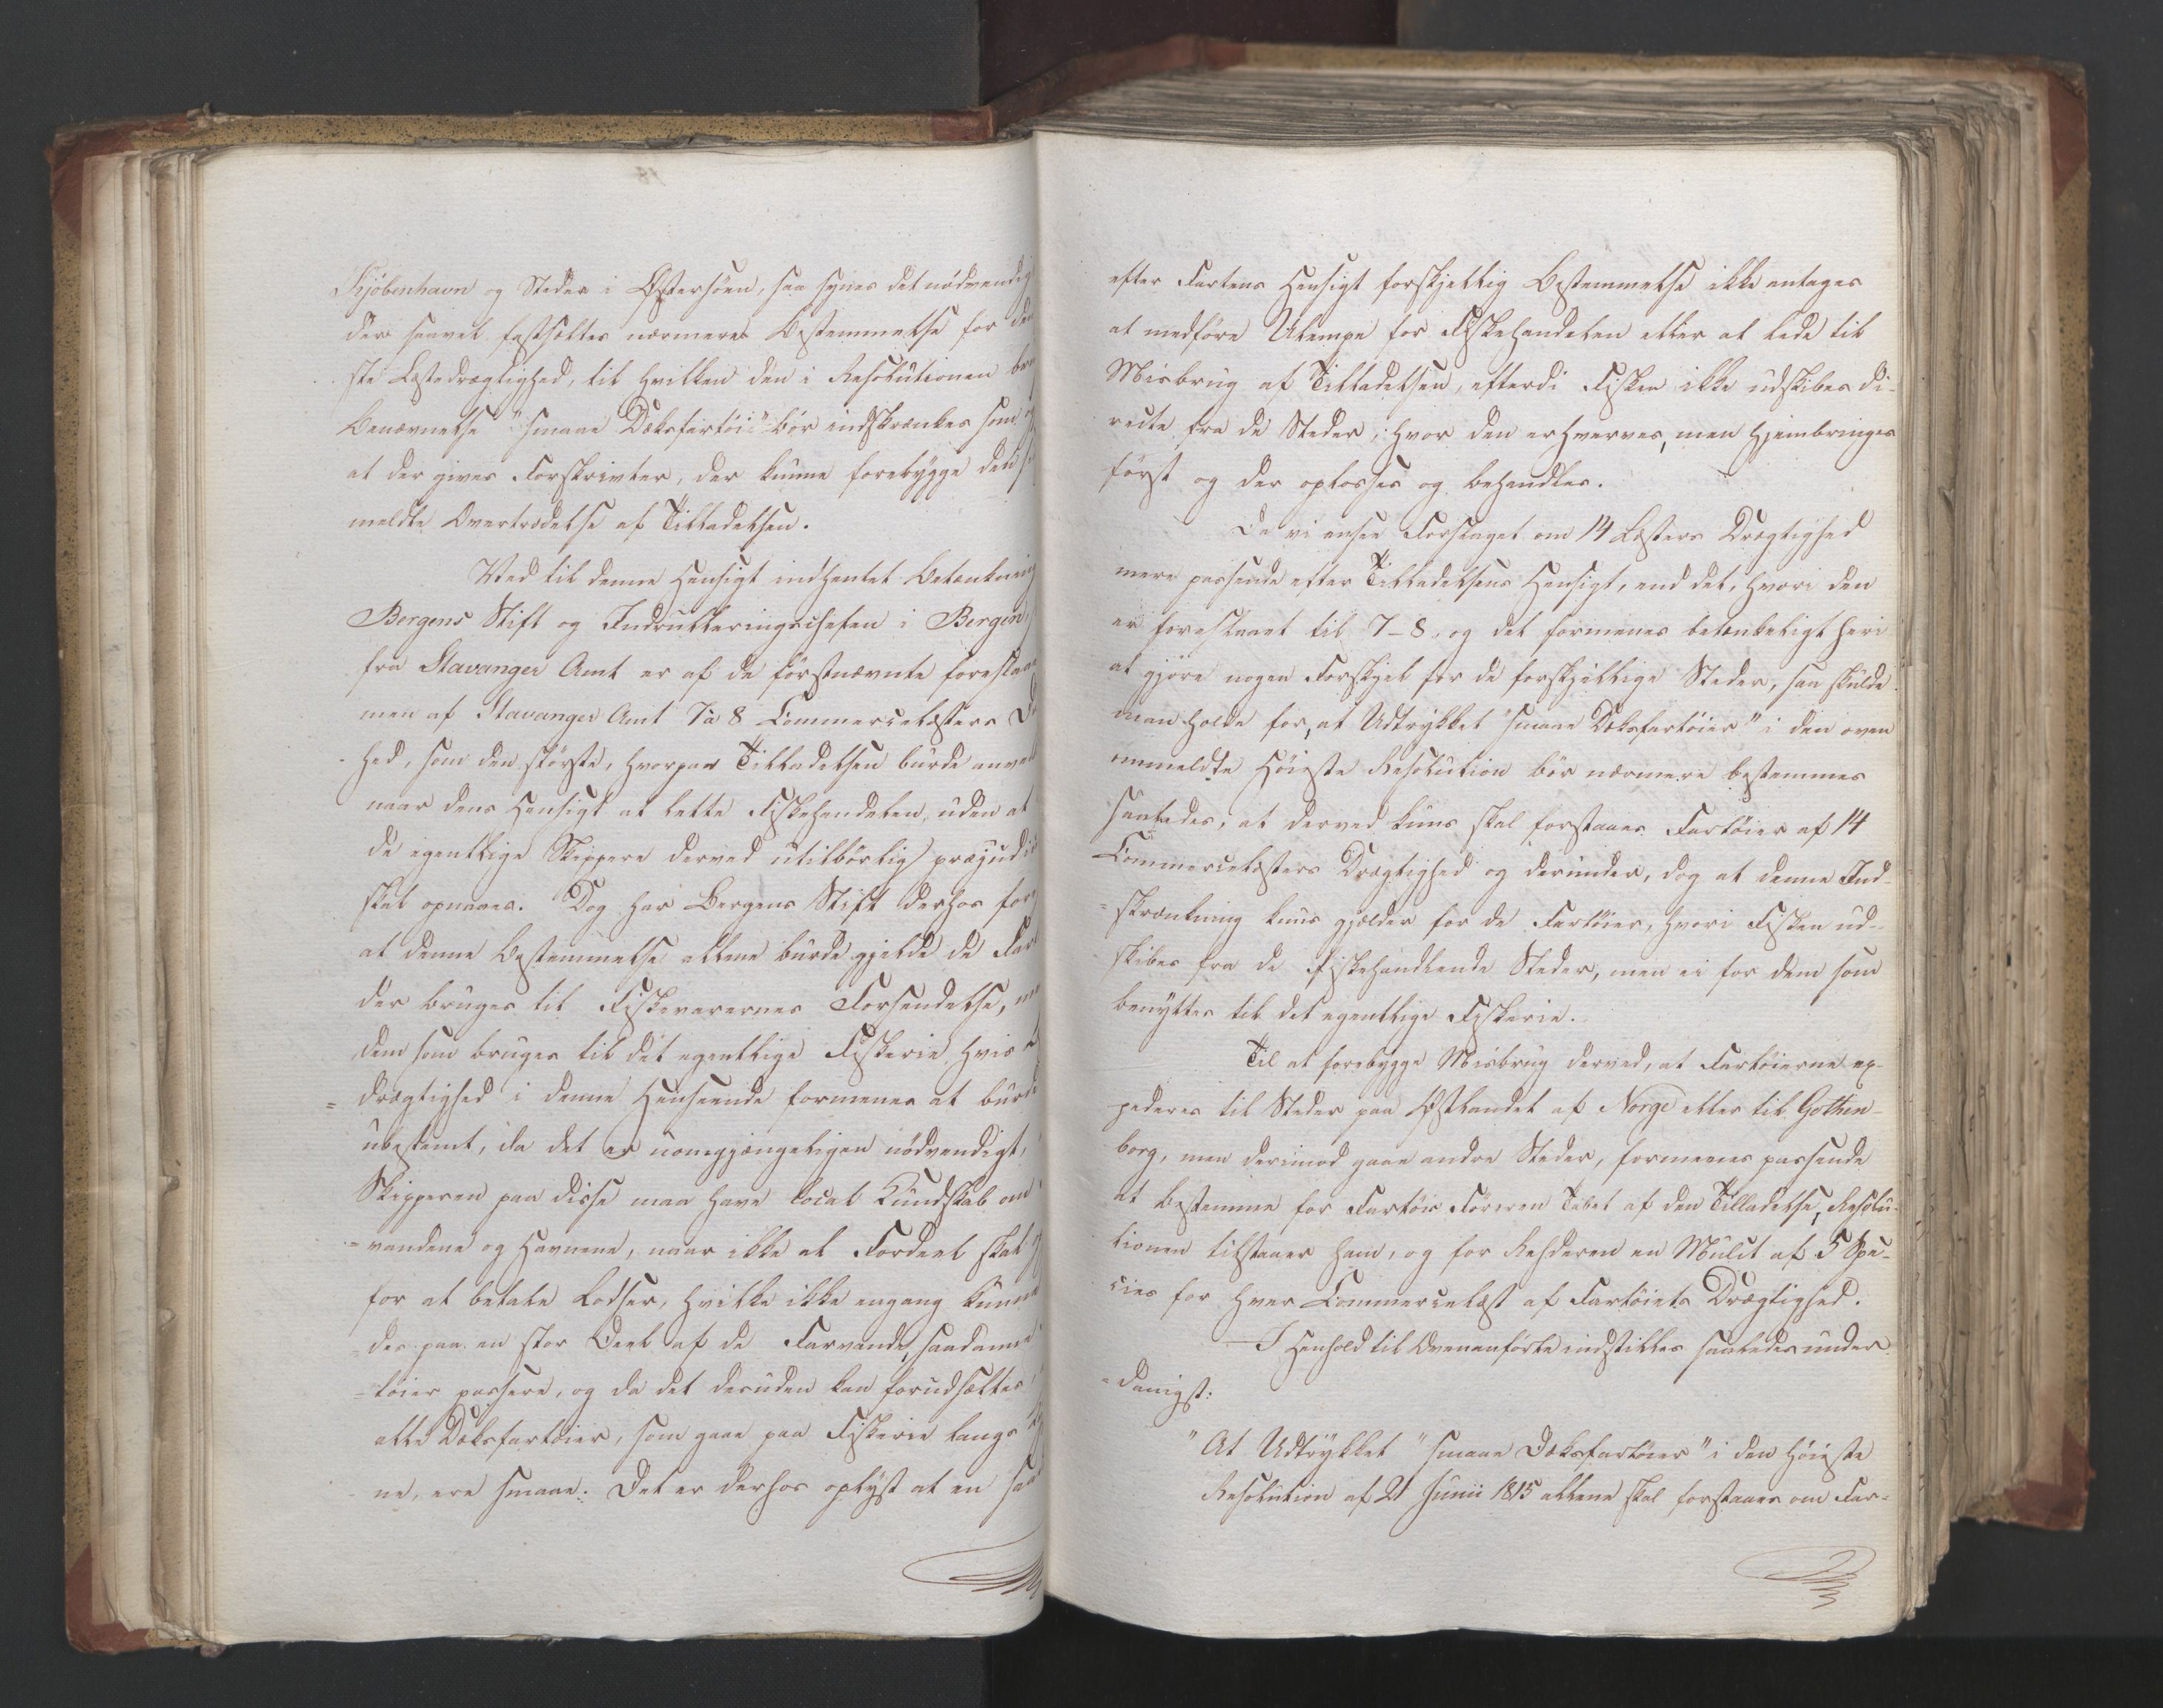 Kjöbenhavn og Steder i Østersöen, saa synes det nödvendig
der saavel fastsættes nærmere Bestemmelse for den
ste Læstedrægtighed, til hvilken den i Resolutionen
Benævnelse "smaae Dæksfartöi" bör indskrænkes som
at der gives Forskrivter, der kunne forebygge den
meldte Overtrædelse af Tilladelsen.
Ved til denne Hensigt indhentet Betænkning
Bergens Stift og Indrulleringschefen i Bergen,
fra Stavanger Amt er af de förstnævnte foreslaae
men af Stavanger Amt 7 à 8 Commercelæsters
hed, som den störste, hvorpaa Tilladelsen burde anven
naar dens Hensigt at lette Fiskehandelen, uden at
de egentlige Skippere derved utilbörlig præjudi
skal opnaaes. Dog har Bergens Stift derhos for
at denne Bestemmelse allene burde gjelde de Far
der bruges til Fiskevarernes Forsendelse,
dem som bruges til det egentlige Fiskerie, hvis
drægtighed i denne Henseende formenes at burde
ubestemt, da det er uomgjængeligen nödvendigt,
Skipperen paa disse maa have local Kundskab om
vandene og Havnene, naar ikke al Fordeel skal
for at betale Lodser, hvilke ikke engang kunne
des paa en stor Deel af de Farvande, saadanne
töier passere, og da det desuden kan forudsættes
alle Dæksfartöier, som gaae paa Fiskerie langs
ne, ere smaae. Det er derhos oplyst at en
efter Fartens Hensigt forskjellig Bestemmelse ikke antages
at medföre Ulempe for Fiskehandelen eller at lede til
Misbrug af Tilladelsen, efterdi Fisken ikke udskibes di-
recte fra de Steder, hvor den erhverves, men hjembringes
först og der oplosses og behandles.
Da vi ansee Forslaget om 14 Læsters Drægtighed
mere passende efter Tilladelsens Hensigt, end det, hvori den
er foreslaaet til 7-8, og det formenes betænkeligt heri
at gjöre nogen Forskjel for de forskjellige Steder, saa skulde
man holde for, at Udtrykket "smaae Dæksfartöier" i den oven
ommeldte Höieste Resolution bör nærmere bestemmes
saaledes, at derved kuns skal forstaaes Fartöier af 14
Commercelæsters Drægtighed og derunder, dog at denne Ind-
skrænkning kuns gjælder for de Fartöier, hvori Fisken ud-
skibes fra de fiskehandlende Steder, men ei for dem som
benyttes til det egentlige Fiskerie.
Til at forebygge Misbrug derved, at Fartöierne ex-
pederes til Steder paa Østlandet af Norge eller til Gothen-
borg, men derimod gaae andre Steder, formenes passende
at bestemme for Fartöis Föreren Tabet af den Tilladelse, Resolu-
tionen tilstaaer ham, og for Rehderen en Mulct af 5 Spe-
cies for hver Commercelæst af Fartöiets Drægtighed.
I Henhold til Ovenanförte indstilles saaledes under-
danigst:
"At Udtrykket "smaae Dæksfartöier" i den höieste
Resolution af 21 Junii 1815 allene skal forstaaes om Far-